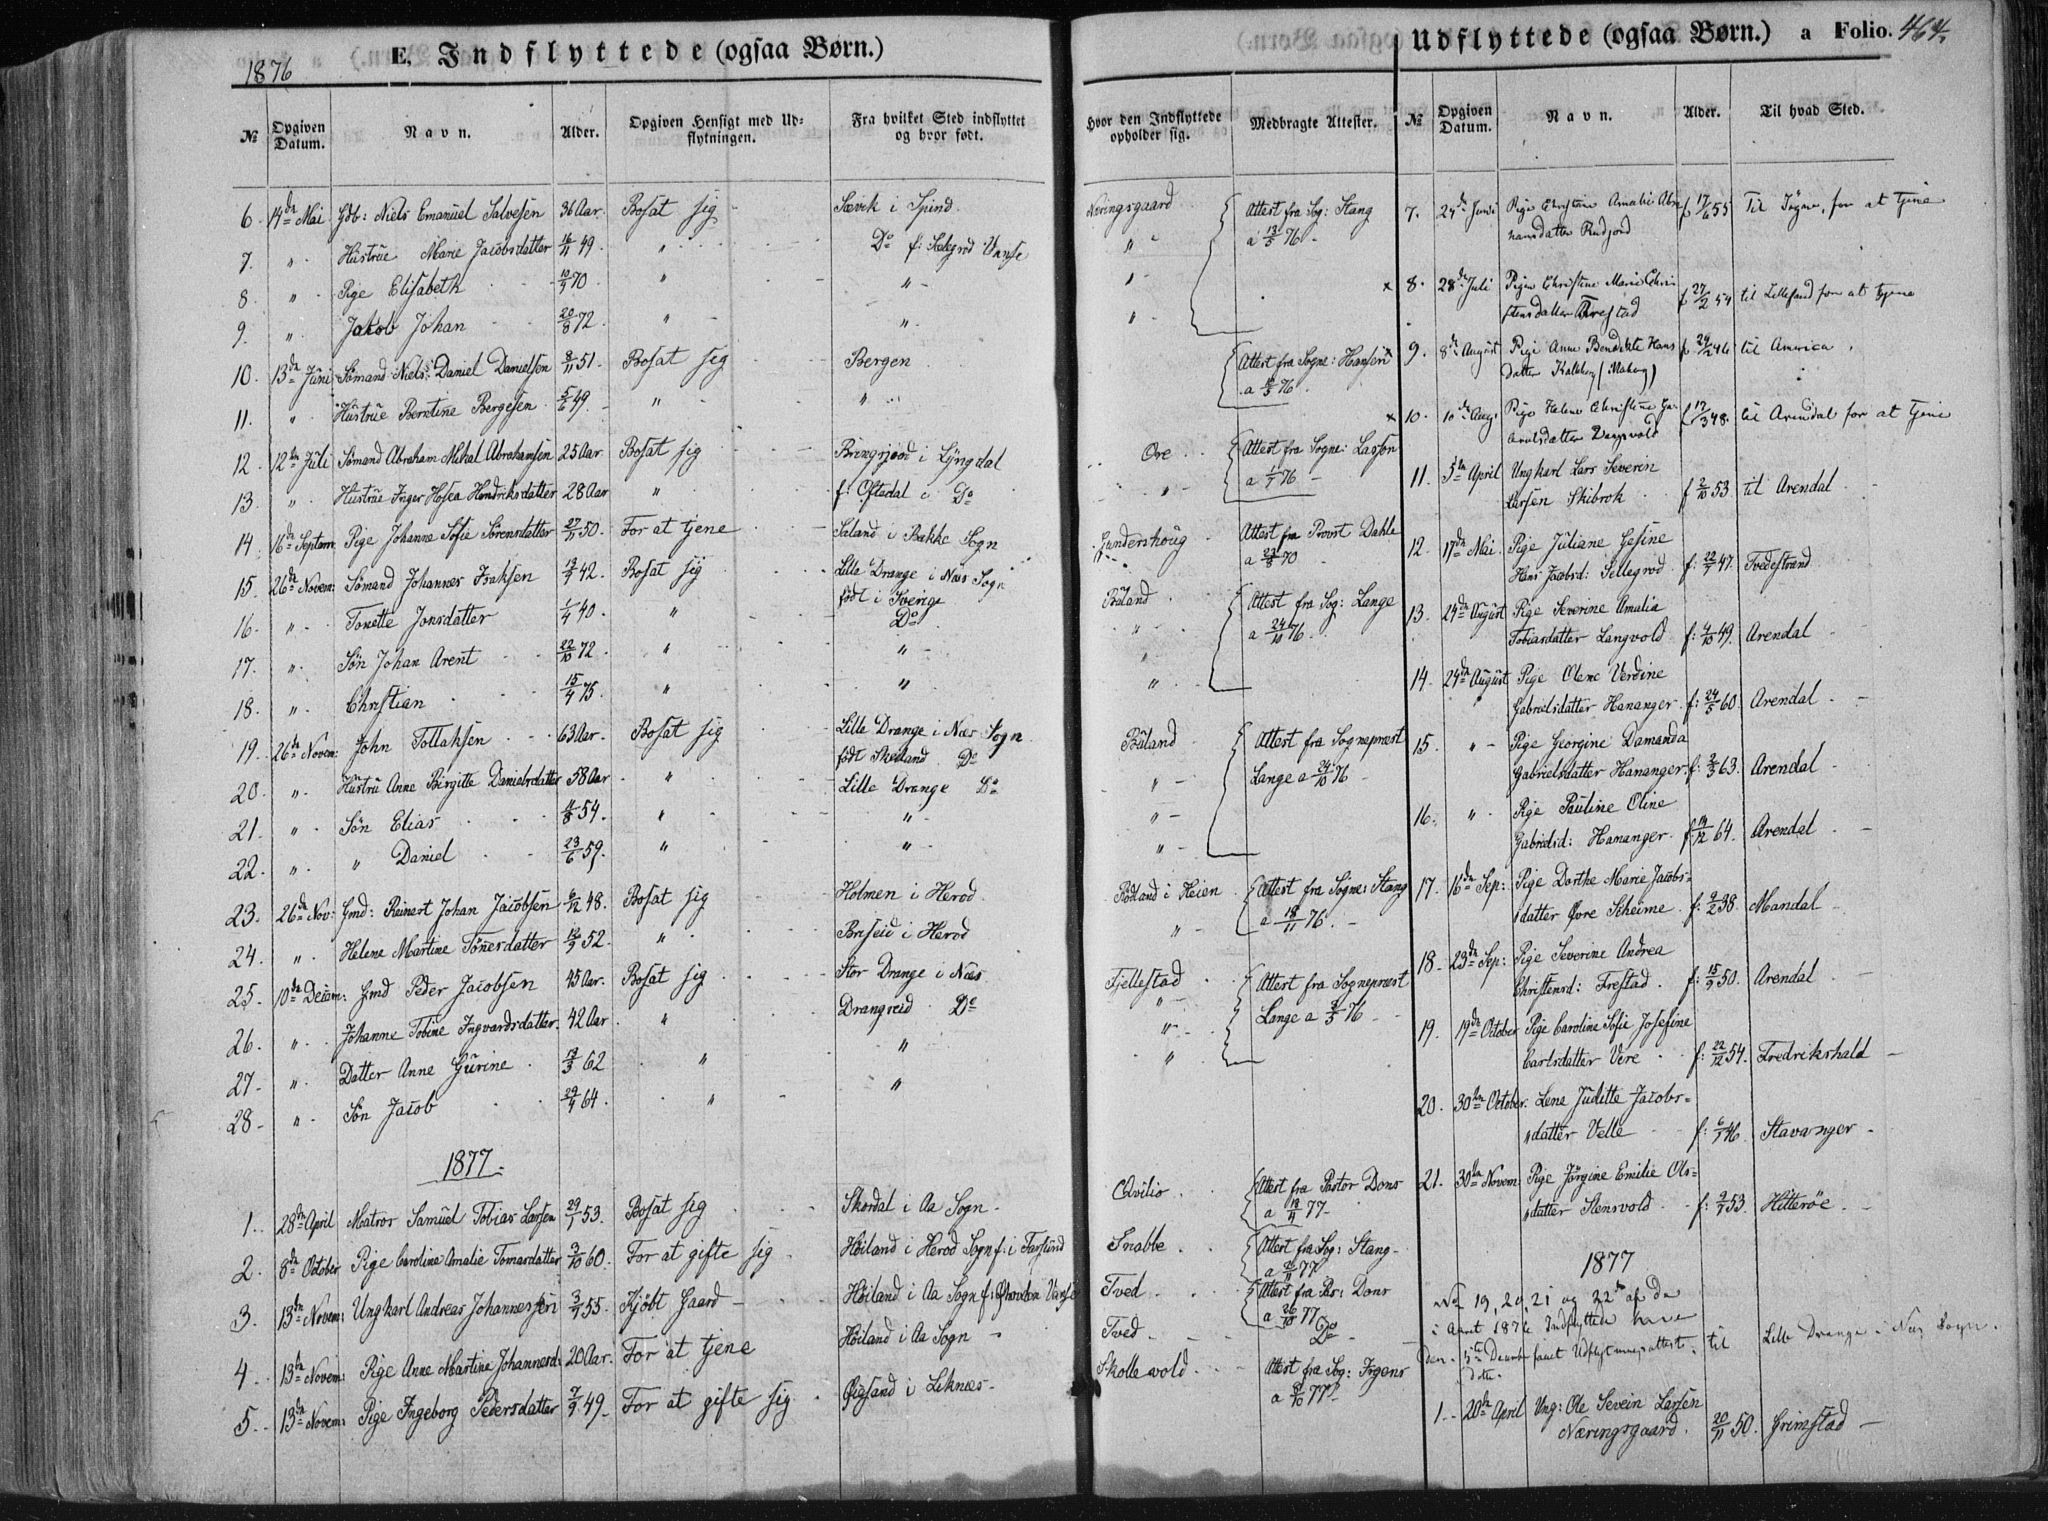 1876
E. Indflyttede (ogsaa Børn.)
№ Opgiven Datum. Navn. Alder. Opgiven Hensigt med Udflytningen. Fra hvilket Sted indflyttet og hvor født. Hvor den Indflyttede opholder sig. Medbragte Attester.
6 14de Mai Gdb: Niels Emanuel Salvesen 36 Aar Bosat sig Sævik i Spind Næringsgaard Attest fra Sog: Stang
7. " Hustrue Marie Jacobsdatter 49. " Do f: Vanse " a 76
8 " Pige Elisabeth 70 " " "
9. " Jakob Johan 20/8 72 " " "
10. 13de Juni Sømand Niels Daniel Danielsen 8/11 51. Bosat sig Bergen Attest fra Sogne: Hansen
11. " Hustrue Berntine Bergesen 5/6 49 " " a 76
12 12te Juli Sømand Abraham Mikal Abrahamsen 25 Aar Bosat sig i Lyngdal Ore Attest fra Sogne: Larsen
13. " Hustrue Inger Hosea Hendriksdatter 28 Aar " f: Oftedal i Do " a 1/7 76
14 16de Septem Pige Johanne Sofie Sørensdatter 27/11 50. For at tjene Saland i Bakke Sogn Gundershoug Attest fra Provst Dahle
15. 26de Novem: Sømand Johannes Isaksen 42. Bosat sig Lille Drange i Næs Sogn Båland Attest fra Sog: Lange
født i Sverige
16. " Tonette Jonsdatter 1/4 40 " Do " a 24/10 76
17. " Søn Johan Arent 22/10 72 " " "
18. " Christian 15/4 75 " " "
19. 26de Novem: John Tollaksen 63 Aar. Bosat sig Lille Drange i Næs Sogn Båland Attest fra Sognepræst
født Do
20 " Hustru Anne Birgitte Danielsdatter 58 Aar " Lille Drange Do " Lange a 24/10 76
21. " Søn Elias 54. " " "
22. " " Daniel 23/6 59. " " "
23. 26de Nov: Gmd: Reinert Johan Jacobsen 6/12 48. Bosat sig Holmen i Herod Rødland i Heien Attest fra Sogne: Stang
24. " Helene Martine Tønnesdatter 52. " Briseid i Herod " a 18/11 76
25. 10de Decem: Gmd Peder Jacobsen 45 Aar. Bosat sig Stor Drange i Næs Fjellestad Attest fra Sognepræst
26. " Johanne Tobine Ingvardsdatter 42 Aar " Drangseid Do " Lange a 76
27. " Datter Anne Gurine 62 " " "
28. " Søn Jacob 64. " " "
1877
1. 28de April Matros Samuel Tobias Larsen 53. Bosat sig Skordal i Aa Sogn Qvilio Attest fra Pastor Dons
a 77
2. 8de October Pige Caroline Amalie Tomasdatter 60. For at gifte sig Høiland i Herod Sogn f: i Farsund Snabbe Attest fra Sog: Stang
a 77
3. 13de Novem: Ungkarl Andreas Johannesen 55. Kjøbt Gaard Høiland i Aa Sogn f: Vanse Tved Attest fra Dons
a 26/10 77
4. 13de Novem: Pige Anne Martine Johannesd: 20 Aar. For at tjene Høiland i Aa Sogn Tved Do
5. 13de Novem: Pige Ingeborg Pedersdatter 49. For at gifte sig Øigsand i Liknes Skollevold Attest fra Sog: Irgens
a 77
Udflyttede (ogsaa Børn.) a Folio. 464.
№ Opgiven Datum. Navn. Alder. Til hvad Sted.
7. 24de Juni Pige Christine Amalie Abrahamsdatter Rudjord 55 Til Søgne, for at tjene
8. 28de Juli Pige Christine Marie Christensdatter Frestad f 27/2 54 til Lillesand for at tjene
9. 8de August Pige Anne Bendikte Hansdatter 46 til America
10. 10de Aug: Pige Helene Christine 48. til Arendal for at tjene
11. 5te April Ungkarl Lars Severin
Larsen Skibrok f 2/10 53 til Arendal
12. 17de Mai Pige Juliane Gesine
Hans Jacobsd: Sellegrod f: 22/7 47. Tvedestrand
13. 24de August Pige Severine Amalia
Tobiasdatter Langvold f: 4/10 49. Arendal
14. 24de August Pige Olene Verdine
Gabrielsdatter Hananger. f: 24/5 60. Arendal
15. " Pige Georgine Damanda
Gabrielsdatter Hananger f: 63. Arendal
16. " Pige Pauline Oline
Gabrielsd: Hananger f 14/12 64. Arendal
17. 16de Sep: Pige Dorthe Marie Jacobsdatter Øvre Scheime f: 38. Mandal
18. 23de Sep: Pige Severine Andrea
Christensd: Frestad. f: 50. Arendal
19. 19de October Pige Caroline Sofie Josefine
Carlsdatter Vere f: 22/12 54. Fredrikshald
20. 30te October. Lene Juditte Jacobsdatter Velle f: 6/7 46. Stavanger
21. 30te Novem: Pige Jørgine Emilie Olsdatter Stensvold f: 53. Hitterøe
1877
No 19, 20, 21 og 22 af de
i Aaret 1876 Indflyttede have
den 5te Decmbr faaet Udflytningsattest til Lille Drange i Næs Sogn.
1. 20de April Ung: Ole Severin Larsen
Næringsgaard. 20/11 50. Grimstad